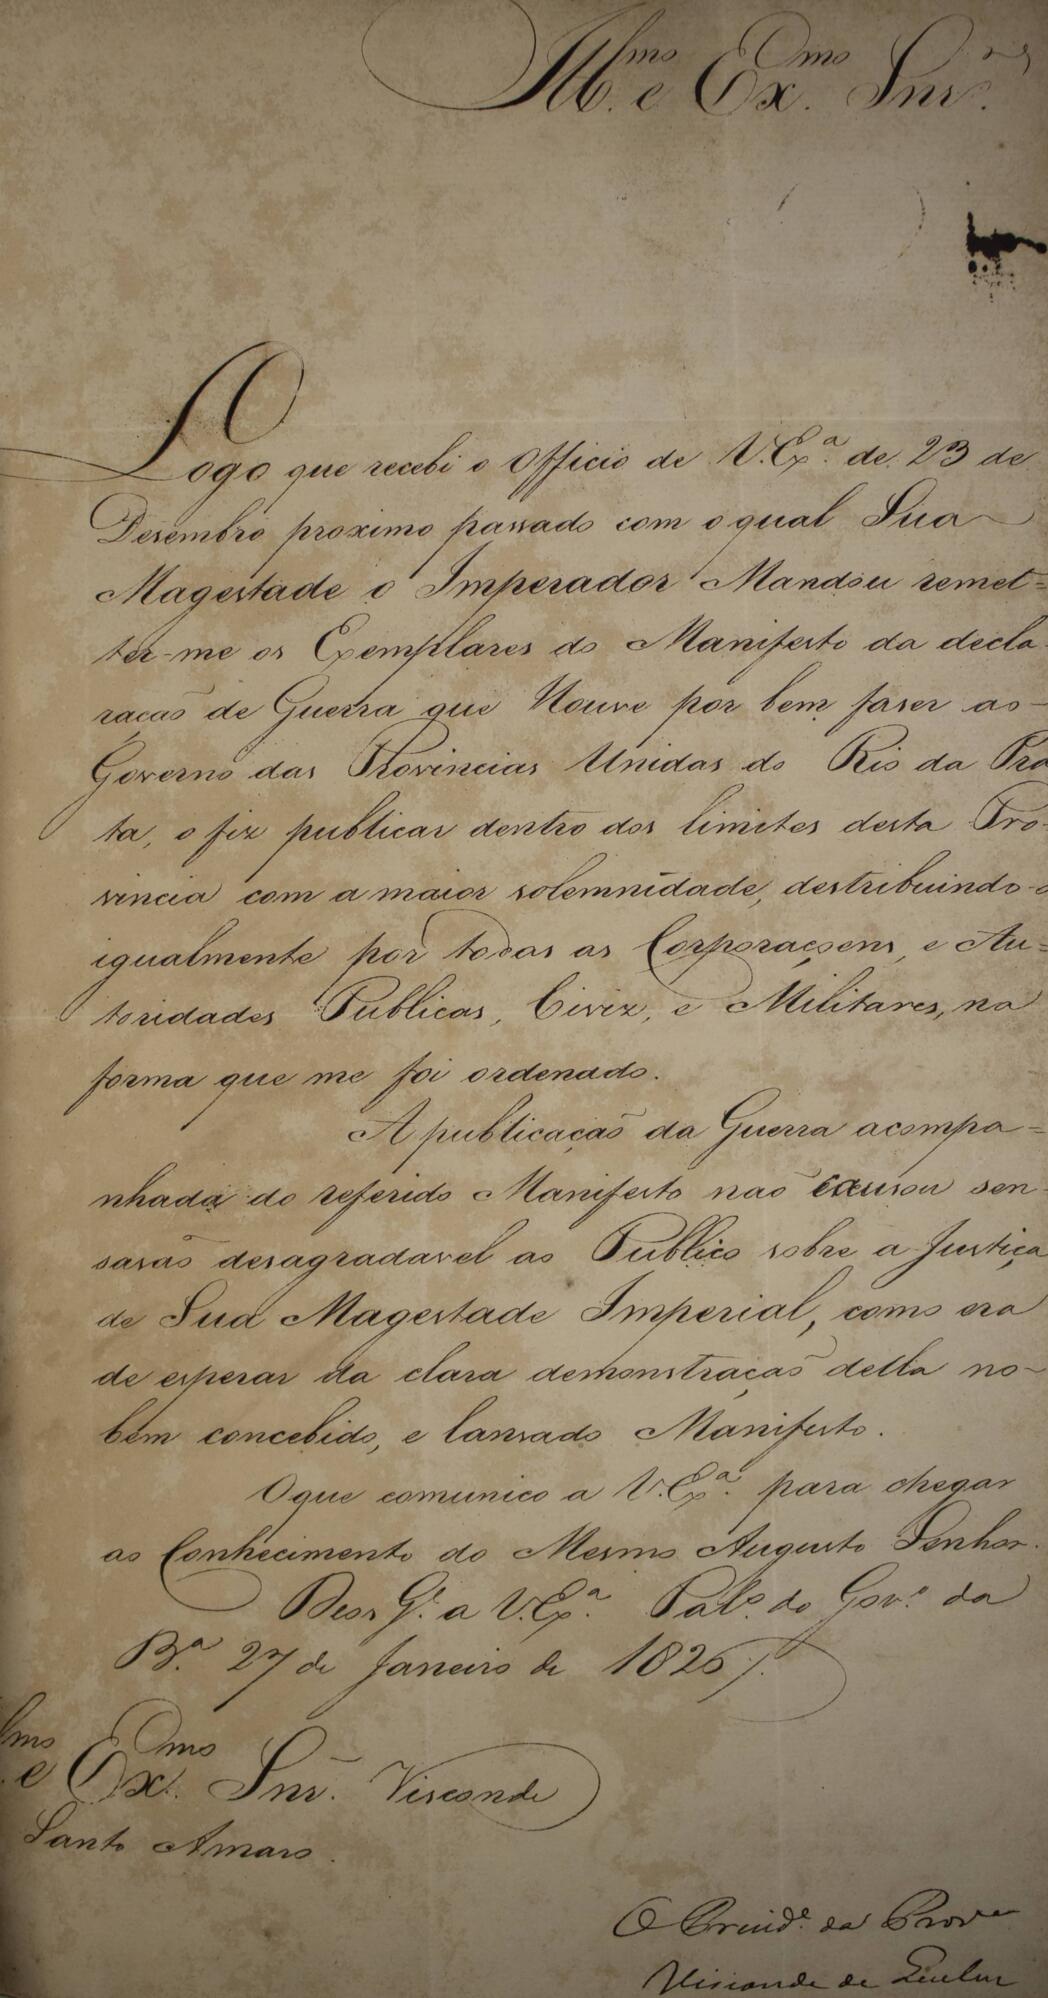 Ill.mo e Ex.mo Snr.
Logo que recebi o Officio de V. Ex.ª de 23 de
Desembro proximo passado com o qual Sua
Magestade o Imperador Mandou remet=
ter-me os Exemplares do Manifesto da decla-
ração de Guerra que Houve por bem faser ao
Governo das Provincias Unidas do Rio da Pra
ta, o fiz publicar dentro dos limites desta Pro-
vincia com a maior solemnidade, destribuindo-o
igualmente por todas as Corporaçoens, e Au=
toridades Publicas, Civiz, e Militares, na
forma que me foi ordenado.
A publicação da Guerra acompa=
nhada do referido Manifesto nao causou sen-
sasão desagradavel ao Publico sobre a Justiça
de Sua Magestade Imperial, como era
de esperar da clara demonstração della no
bem concebido, e lansado Manifesto.
O que comunico a V. Ex.ª para chegar
ao Conhecimento do Mesmo Augusto Senhor.
Deos G.e a V. Ex.ª Pal.º do Gov.º da
B.ª 27 de Janeiro de 1826
lmo e Ex.mo Snr. Visconde
Santo Amaro.
O Presid.e da Prov.a
Visconde de Queluz